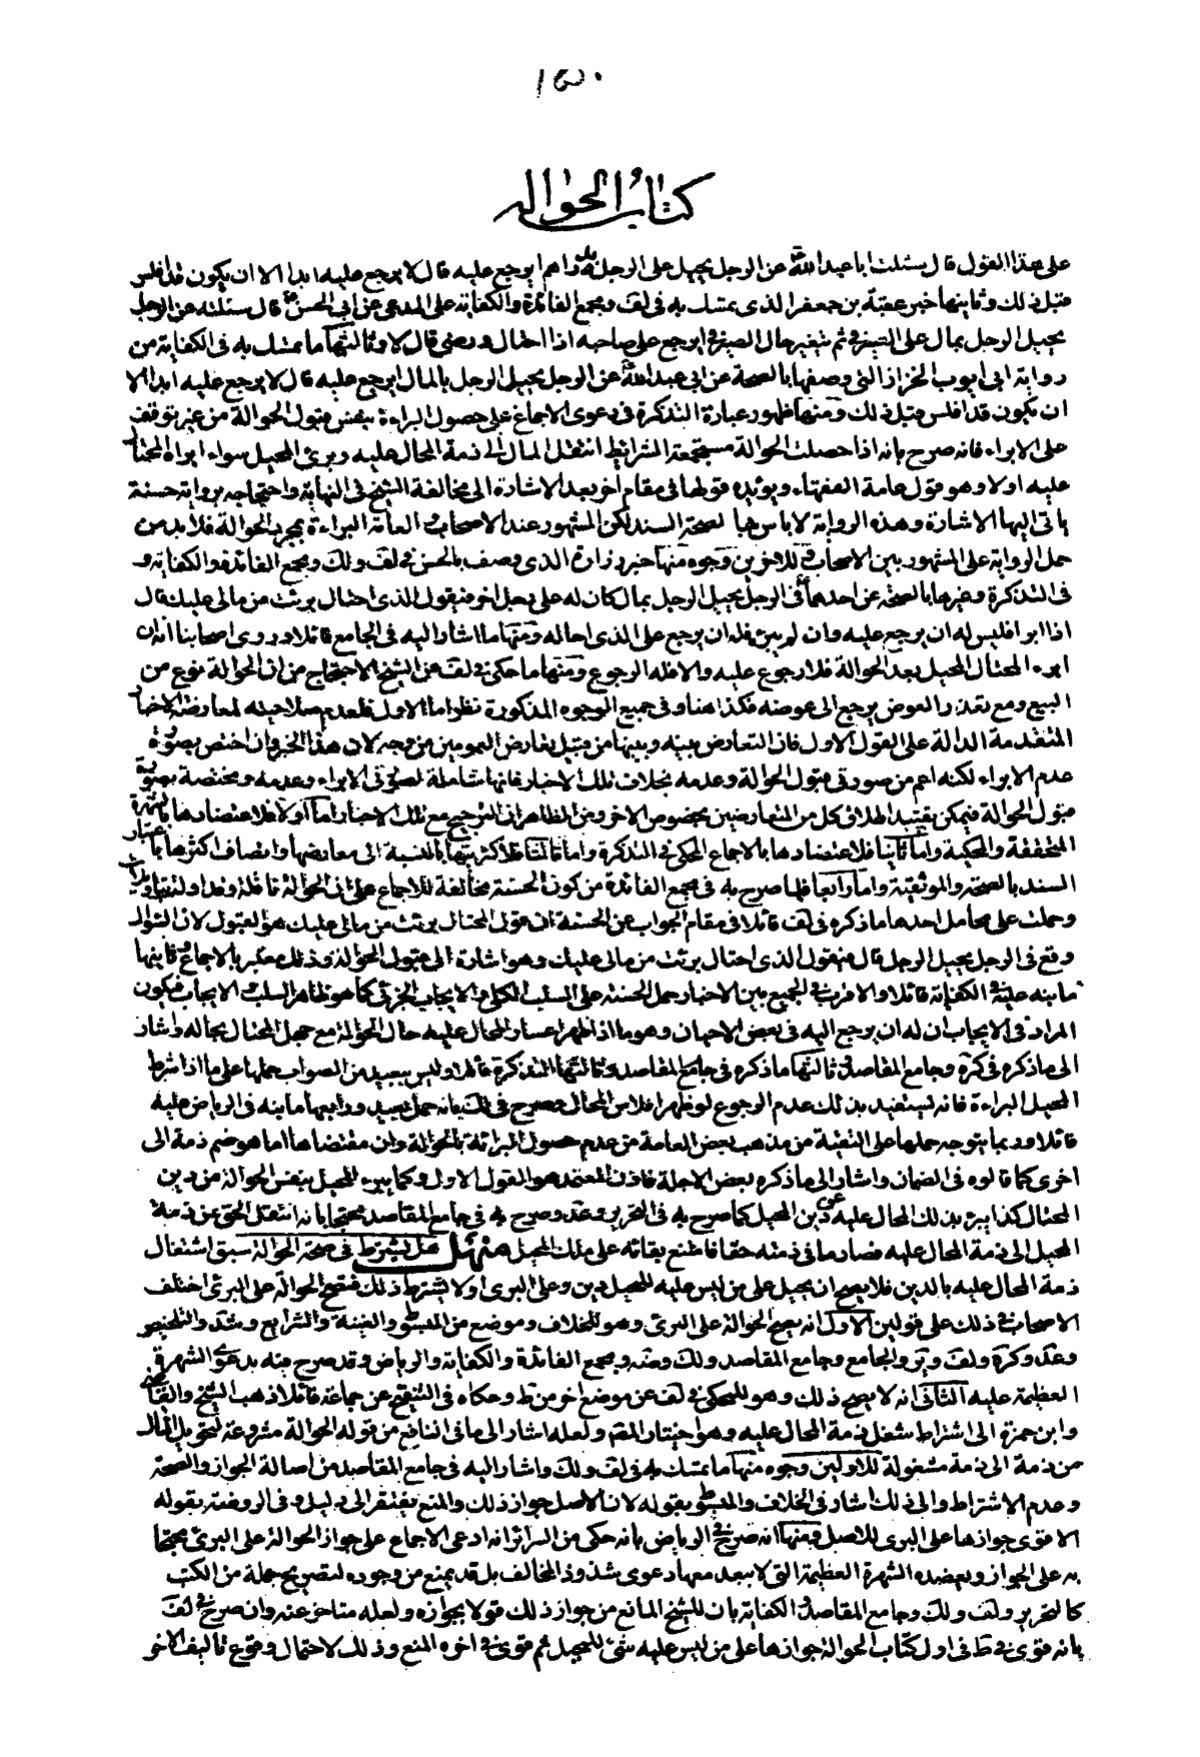 ١٥٠
كتاب الحواله
على هذا القول قال سئلت ابا عبد الله ع عن الرجل يحيل على الرجل بدراهم ايرجع عليه قال لا يرجع عليه ابدا الا ان يكون قد افلس
قبل ذلك وثانيها خبر عقبة بن جعفر الذى تمسك به فى لف ومجمع الفائدة والكفاية على المدعى عن ابى الحسن ع قال سئلته عن الرجل
يحيل الرجل بمال على الصيرفى ثم يتغير حال الصيرفى ايرجع على صاحبه اذا احتال ورضى قال لا وثالثها ما تمسك به فى الكفاية من
رواية ابى ايوب الخزاز التى وصفها بالصحة عن ابى عبد الله ع عن الرجل يحيل الرجل بالمال ايرجع عليه قال لا يرجع عليه ابدا الا
ان يكون قد افلس قبل ذلك ومنها ظهور عبارة التذكرة فى دعوى الاجماع على حصول البراءة بنفس قبول الحوالة من غير توقف
على الابراء فانه صرح بانه اذا حصلت الحوالة مستجمعة الشرائط انتقل المال الى ذمة المحال عليه وبرئ المحيل سواء ابراه المحتال
عليه اولا وهو قول عامة الفقهاء ويؤيده قولها فى مقام اخر بعد الاشارة الى مخالفة الشيخ فى النهاية واحتجاجه برواية حسنة
ياتى اليها الاشارة وهذه الرواية لا باس بها لصحة السند لكن المشهور عند الاصحاب والعامة البراءة بمجرد الحوالة فلا بد من
حمل الرواية على المشهور بين الاصحاب وللاخرين وجوه منها خبر زرارة الذى وصف بالحسن فى لف ولك ومجمع الفائدة والكفاية و
فى التذكرة وغيرها بالصحة عن احدهما ع فى الرجل يحيل الرجل بمال كان له على رجل اخر فيقول الذى احتال برئت من مالى عليك قال
اذا ابراه فليس له ان يرجع عليه وان لم يبرئه فله ان يرجع على الذى احاله ومنها ما اشار اليه فى الجامع قائلا وروى اصحابنا انه ان
ابرء المحتال المحيل بعد الحوالة فلا رجوع عليه والا فله الرجوع ومنها ما حكى فى لف عن الشيخ الاحتجاج من ان الحوالة نوع من
البيع ومع تعذر العوض يرجع الى عوضه فكذا هنا وفى جميع الوجوه المذكورة نظر اما الاول فلعدم صلاحيته لمعارضة الاخبار
المتقدمة الدالة على القول الاول فان التعارض بينه وبينها من قبيل تعارض العمومين من وجه لان هذا الخبر وان اختص بصورة
عدم الابراء لكنه اعم من صورتى قبول الحوالة وعدمه بخلاف تلك الاخبار فانها شاملة لصورتى الابراء وعدمه ومختصة بصورة
قبول الحوالة فيمكن تقييد اطلاق كل من المتعارضين بخصوص الاخر ومن الظاهر ان الترجيح مع تلك الاخبار اما اولا فلاعتضادها بالشهرة
المحققة والمحكية واما ثانيا فلاعتضادها بالاجماع المحكى فى التذكرة واما ثالثا فلاكثريتها بالنسبة الى معارضها واتصاف اكثرها باعتبار
السند بالصحة والموثقية واما رابعا فلما صرح به فى مجمع الفائدة من كون الحسنة مخالفة للاجماع على ان الحوالة ناقلة وقد اولت بتاويلات
وحملت على محامل احدها ما ذكره فى لف قائلا فى مقام الجواب عن الحسنة ان قول المحتال برئت من مالى عليك هو القبول لان السؤال
وقع فى الرجل يحيل الرجل قال فيقول الذى احتال برئت من مالى عليك وهو اشارة الى قبول الحوالة وذلك معتبر بالاجماع وثانيها
ما نبه عليه فى الكفاية قائلا والاقرب فى الجميع بين الاخبار حمل الحسنة على السلب الكلى والايجاب الجزئى كما هو ظاهر السلب والايجاب فيكون
المراد فى الايجاب ان له ان يرجع اليه فى بعض الاحيان وهو ما اذا ظهر اعسار المحال عليه حال الحوالة مع جهل المحتال بحاله واشار
الى ما ذكره فى كرة وجامع المقاصد وثالثها ما ذكره فى جامع المقاصد وثالثها التذكرة قائلا وليس ببعيد من الصواب حملها على ما اذا شرط
المحيل البراءة فانه يستفيد بذلك عدم الرجوع لو ظهر افلاس المحال وصرح فى لك بانه حمل بعيد ورابعها ما نبه فى الرياض عليه
قائلا وربما يتوجه حملها على التقية من مذهب بعض العامة من عدم حصول البرائة بالحوالة وان مقتضاها انما هو ضم ذمة الى
اخرى كما قالوه فى الضمان واشار الى ما ذكره بعض الاجلة فاذن المعتمد هو القول الاول وكما يبرء المحيل بنفس الحوالة من دين
المحتال كذا يبرء بذلك المحال عليه عن دين المحيل كما صرح به فى التحرير وعد وصرح به فى جامع المقاصد محتجا بانه انتقل الحق من ذمة
المحيل الى ذمة المحال عليه فصار ما فى ذمته حقا فامتنع بقائه على ملك المحيل منهل هل يشترط فى صحة الحوالة سبق اشتغال
ذمة المحال عليه بالدين فلا يصح ان يحيل على من ليس عليه للمحيل دين وعلى البرى اولا يشترط ذلك فتصح الحوالة على البرئ اختلف
الاصحاب فى ذلك على قولين الاول انه يصح الحوالة على البرئ وهو للخلاف وموضع من المبسوط والغنية والشرايع وشد والتلخيص
وعد وكرة ولف وير والجامع وجامع المقاصد ولك وضه ومجمع الفائدة والكفاية والرياض وقد صرح فيه بدعوى الشهرة
العظيمة عليه الثانى انه لا يصح ذلك وهو للمحكى فى لف عن موضع اخر من ط وحكاه فى التنقيح عن جماعة قائلا ذهب الشيخ والقاضى
وابن حمزة الى اشتراط شغل ذمة المحال عليه وهو اختيار المقنع ولعله اشار الى ما فى النافع من قوله الحوالة مشروعة لتحويل المال
من ذمة الى ذمة مشغولة للاولين وجوه منها ما تمسك به فى لف ولك واشار اليه فى جامع المقاصد من اصالة الجواز والصحة
وعدم الاشتراط والى ذلك اشار فى الخلاف والمبسوط بقوله لان الاصل جواز ذلك والمنع يفتقر الى دليل وفى الروضة بقوله
الاقوى جوازها على البرى للاصل ومنها انه صرح فى الرياض بانه حكى من السرائر انه ادعى الاجماع على جواز الحوالة على البرئ محتجا
به على الجواز ويعضده الشهرة العظيمة التى لا يبعد معها دعوى شذوذ المخالف بل قد يمنع من وجوده لتصريح جملة من الكتب
كالتحرير ولف ولك وجامع المقاصد والكفاية بان للشيخ المانع من جواز ذلك قولا بجوازه ولعله متاخر عنه وان صرح فى لف
بانه قوى فى ط فى اول كتاب الحوالة جوازها على من ليس عليه شئ للمحيل ثم قوى فى اخره المنع وذلك لاحتمال وقوع تاليف الاخر